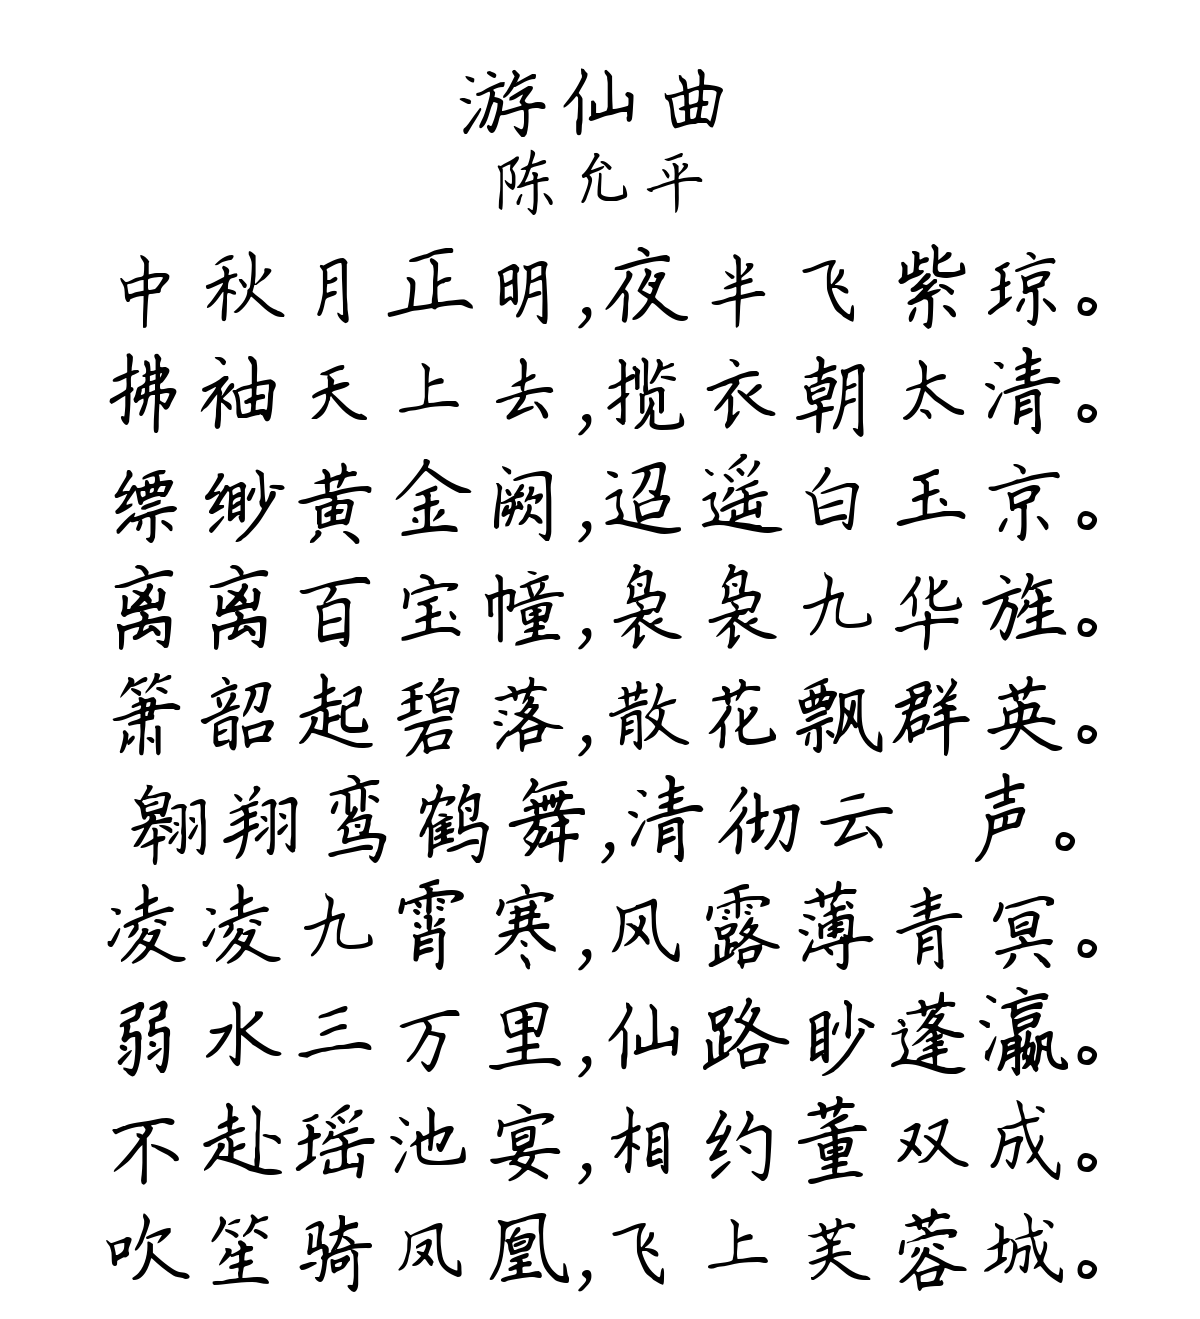 游仙曲
陈允平
中秋月正明,夜半飞紫琼。
拂袖天上去,揽衣朝太清。
缥缈黄金阙,迢遥白玉京。
离离百宝幢,袅袅九华旌。
箫韶起碧落,散花飘群英。
翱翔鸾鹤舞,清彻云 声。
凌凌九霄寒,风露薄青冥。
弱水三万里,仙路眇蓬瀛。
不赴瑶池宴,相约董双成。
吹笙骑凤凰,飞上芙蓉城。